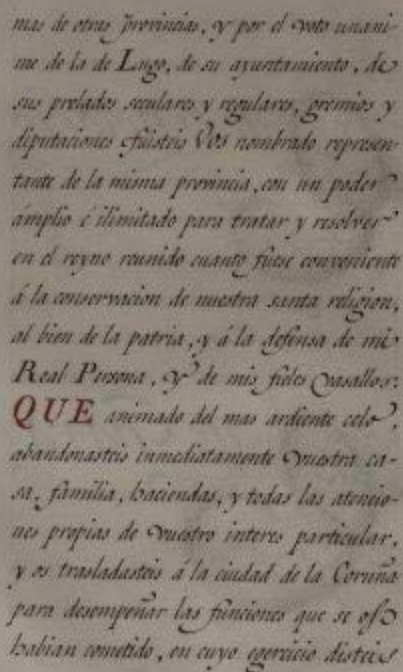 mas de otras provincias, y por el voto unani-
me de la de Lugo, de su ayuntamiento, de
sus prelados seculares y regulares, gremios y
diputaciones fuisteis Vos nombrado represen-
tante de la misma provincia, con un poder
ámplio é ilimitado para tratar y resolver
en el reyno reunido cuanto fuese conveniente
á la conservacion de nuestra santa religion,
al bien de la patria, y á la defensa de mi
Real Persona, y de mis fieles vasallos:
QUE animado del mas ardiente celo,
abandonasteis inmediatamente vuestra ca-
sa, familia, haciendas, y todas las atencio-
nes propias de vuestro interes particular,
y os trasladasteis á la ciudad de la Coruña
para desempeñar las funciones que se os
habian cometido, en cuyo egercicio disteis